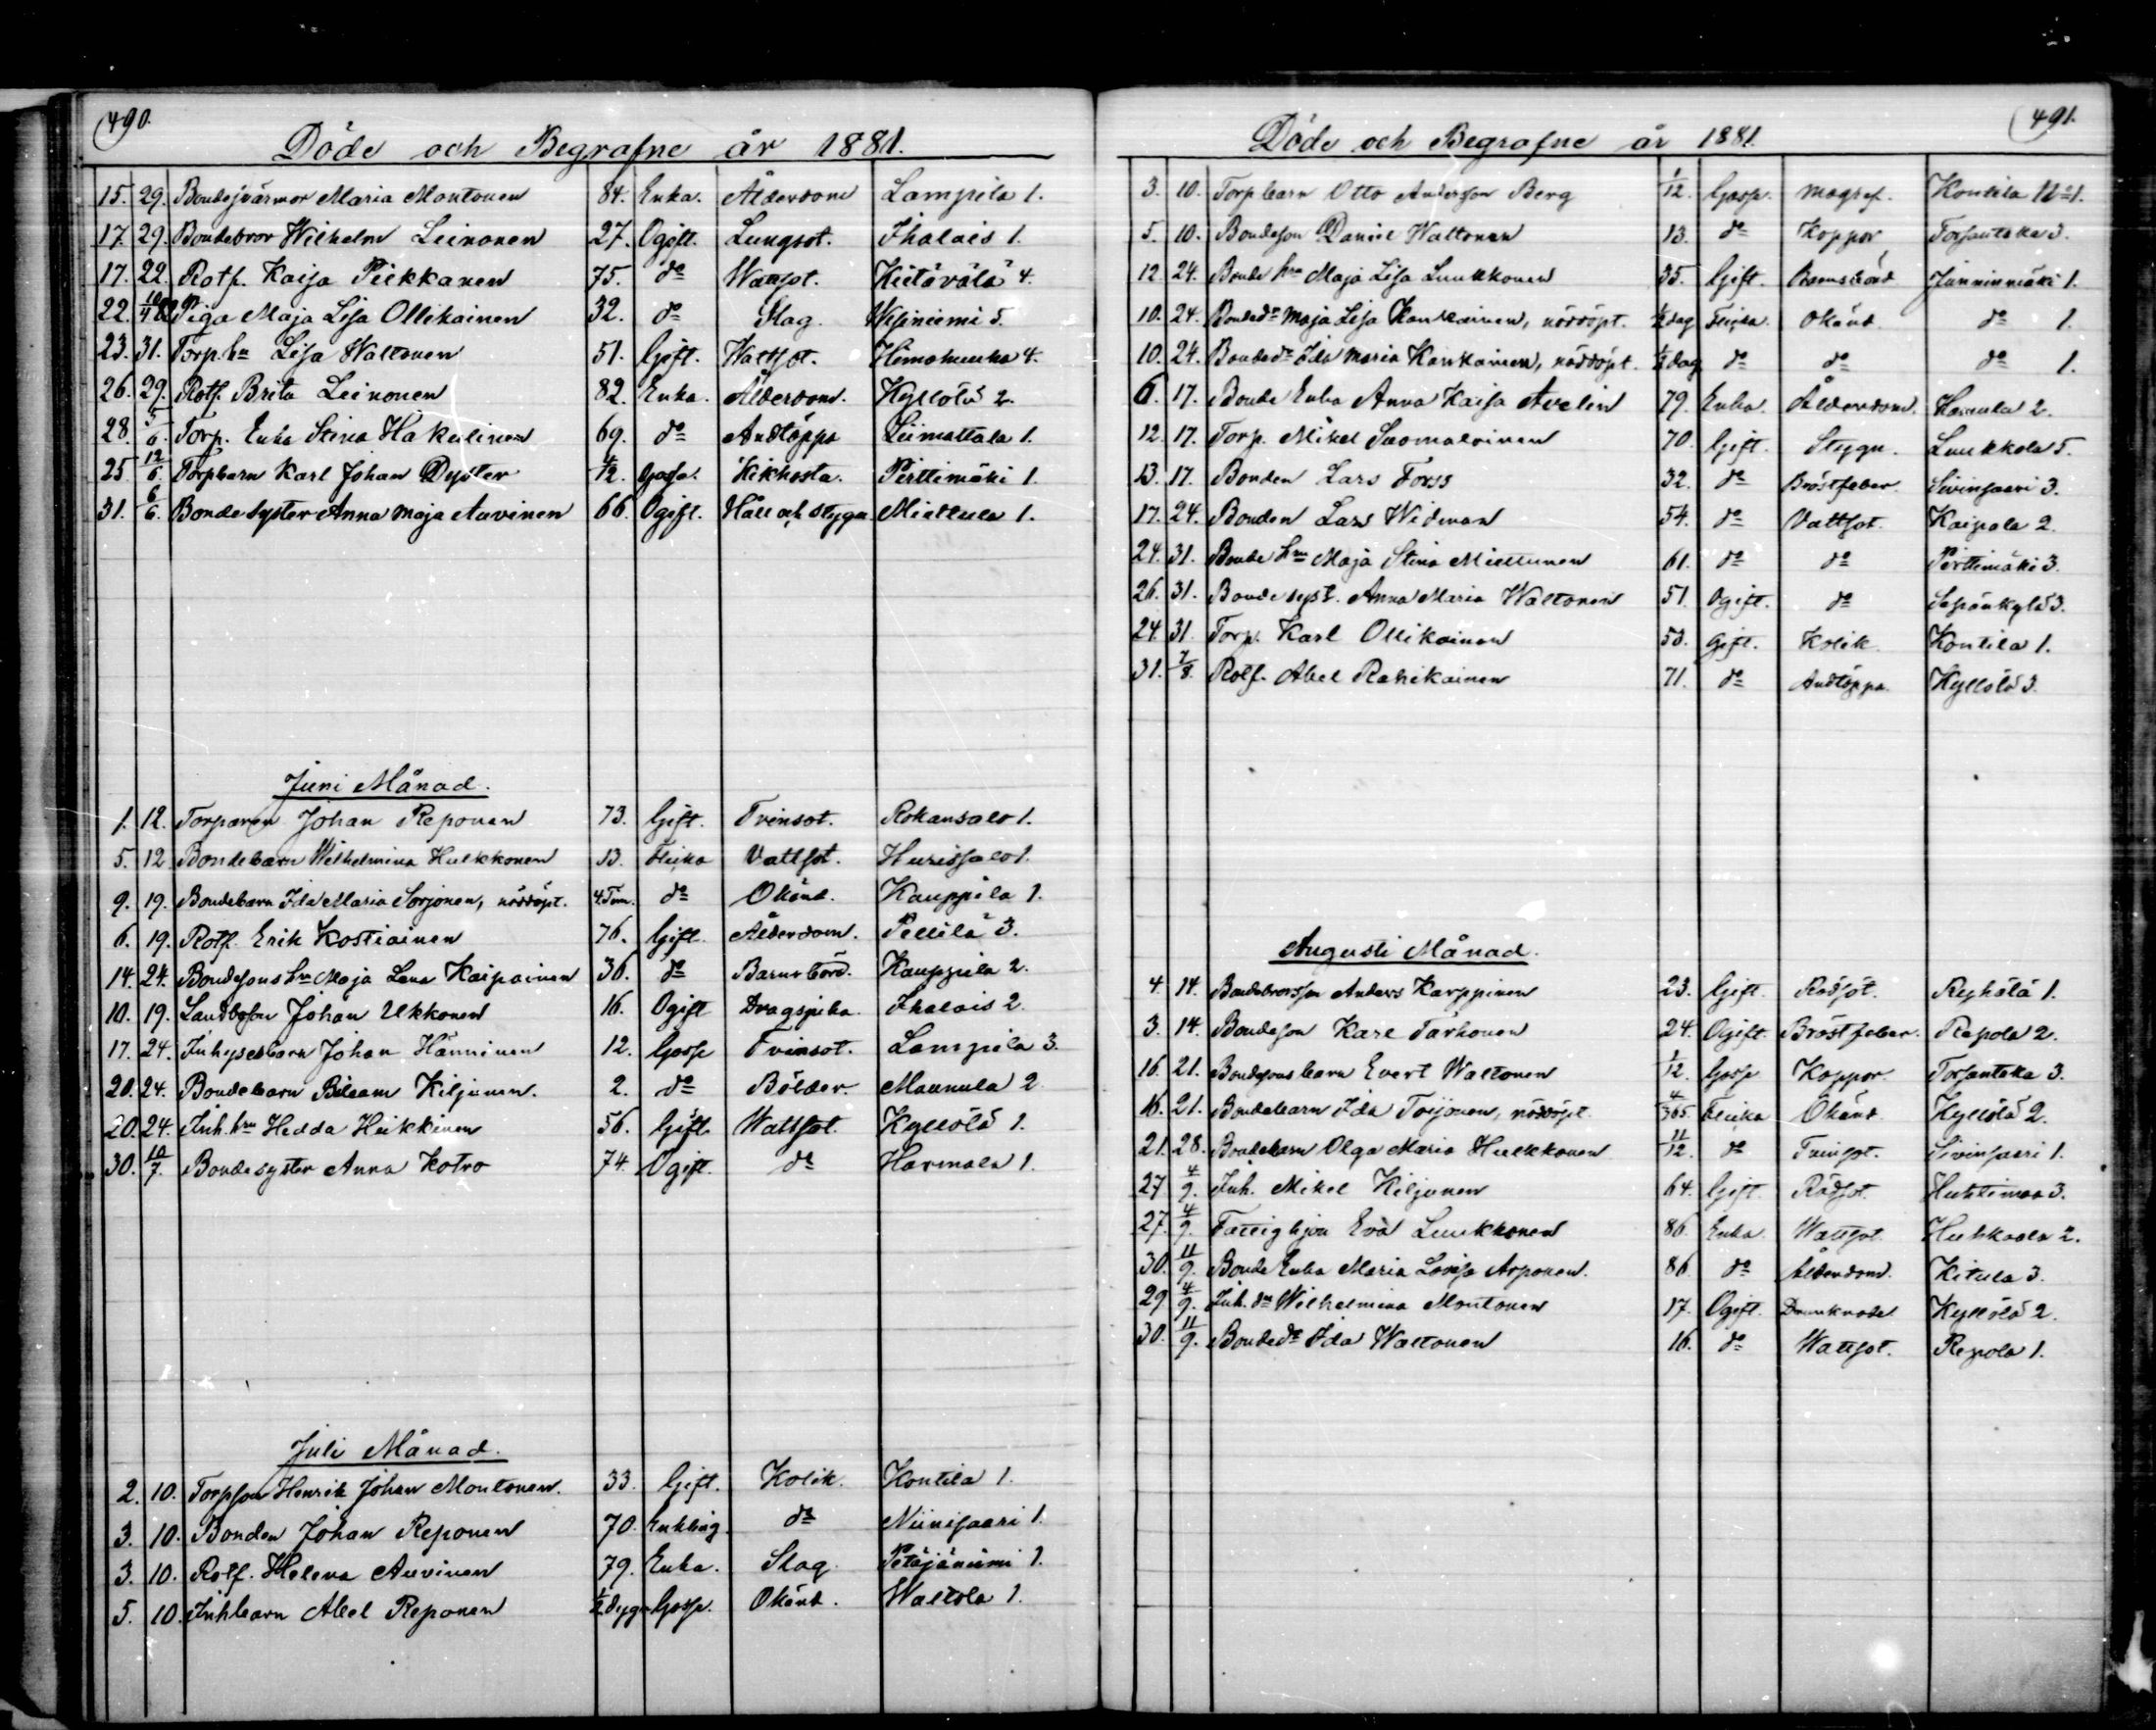 490.
Döde och Begrafne år 1881.
15. 29. Bondesvärmor Maria Montonen 84. Enka. Ålderdom Lampila 1.
17. 29. Bondebror Wilhelm Leinonen 27. Ogift. Lungsot. Ihalais 1.
17. 22. Rotf. Kaisa Pickkanen 75. do Wattsot. Kietävälä 4.
22. Piga Maja Lisa Ollikainen 32. do Slag. Wesiniemi 5.
23. 31. Torp. hu Lisa Waltonen 51. Gift. Wattsot. Himohuuha 4.
26. 29. Rotf. Brita Leinonen 82. Enka. Ålderdom. Kyllölä 2.
28. 5/6. Torp. Enka Stina Hakulinen 69. do Andtäppa Liimattala 1.
25 12/6. Torpbarn Karl Johan Dyster 4/12. Gosse. Kikhosta. Pirttimäki 1.
31. 6/6. Bonde syster Anna Maja Auvinen 66. Ogift. Håll och stygn Miettula 1.
Juni Månad.
1. 12. Torparen Johan Reponen 73. Gift. Tvinsot. Rokansalo 1.
5. 12 Bondebarn Wilhelmina Hulkkonen 13. Flicka Vattsot. Hurissalo 1.
9. 19. Bondebarn Ida Maria Sorjonen, nöddöpt. 4. Tim. do Okänd. Kauppila 1.
6. 19. Rotf. Erik Kostiainen 76. Gift. Ålderdom. Pellilä 3.
14. 24. Bondesons hu Maja Lena Kaipainen 36. do Barnsbörd. Kauppila 2.
10. 19. Landbson Johan Ukkonen 16. Ogift Dragsjuka. Ihalais 2.
17. 24. Inhysesbarn Johan Hänninen 12. Gosse Tvinsot. Lampila 3.
20. 24. Bondebarn Bileam Kiljunen. 2. do Bölder. Maunula 2
20. 24. Inh. hu Hedda Heikkinen 56. Gift. Wattsot. Kyllölä 1.
30. 10/7. Bonde syster Anna Kotro 74. Ogift. do Harmala 1.
Juli Månad.
2. 10. Torpson Henrik Johan Montonen. 33. Gift. Kolik. Kontila 1.
3. 10. Bonden Johan Reponen 70. Enkling. do Niinisaari 1.
3. 10. Rotf. Helena Auvinen 79. Enka. Slag. Petäjäniemi 1.
5. 10. Inhbarn Abel Reponen 1/2 dygn Gosse. Okänd. Waltola 1.
491.
Döde och Begrafne år 1881.
3. 10. Torpbarn Otto Anderson Berg 1/12. Gosse. Magref. Kontila
5. 10. Bondeson Daniel Waltonen 13. do Koppor Torsantaka 3.
12 24. Bonde hu Maja Lisa Luukkonen 35. Gift. Barnsbörd Junninmäki 1.
10. 24. Bonded. Maja Lisa Kankainen, nöddöpt. 1/2 dag Flicka. Okänd do 1.
10. 24. Bonded. Ida Maria Kankainen, nöddöpt. 1/2 dag do do do 1.
6. 17. Bonde Enka Anna Kaisa Avelin 79. Enka. Ålderdom. Hannula 2.
12. 17. Torp. Mikel Suomalainen 70. Gift. Stygn. Luukkola 5.
13. 17. Bonden Lars Forss 32. do Bröstfeber. Sivinsaari 3.
17. 24. Bonden Lars Widman 54. do Vattsot. Kaipala 2.
24. 31. Bonde hu Maja Stina Miettunen 61. do do Pirttimäki 3.
26. 31. Bonde syst. Anna Maria Waltonen 51 Ogift. do Sepänkylä 3.
24. 31. Torp. Karl Ollikainen 53. Gift. Kolik. Kontila 1.
31. 7/8. Rotf. Abel Rahikainen 71. do Andtäppa. Kyllölä 3.
Augusti Månad.
4. 14. Bondebrorson Anders Karppinen 23. Gift. Rödsot. Reyhälä 1.
3. 14. Bondeson Karl Tarhonen 24. Ogift. Bröstfeber. Repola 2.
16. 21. Bondesons barn Evert Waltonen 1/12. Gosse Koppor. Torsantaka 3.
16. 21. Bondebarn Ida Toijonen, nöddöpt. 4/365. Flicka Okänd. Kyllölä 2.
21. 28. Bondebarn Olga Maria Hulkkonen 11/12. do Tvinsot. Sivinsaari 1.
27 4/9. Inh. Mikel Kiljunen 64. Gift. Rödsot. Huhtimaa 3.
27. 4/9. Fattighjon Eva Luukkonen 86. Enka Wattsot. Huhkaala 2.
30. 11/9. Bonde Enka Maria Lovisa Arponen. 86 do Ålderdom. Kitula 3.
29 4/9. Inh. dr Wilhelmina Montonen 17. Ogift. Drunknade Kyllölä 2.
30. 11/9. Bonded. Ida Waltonen 16. do Wattsot. Repola 1.